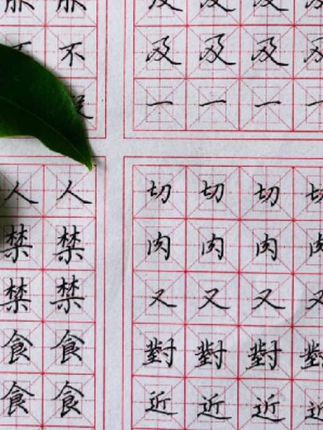 不
及 及 及 及
及 及 及 及
一 一 一 一
人 人
禁 禁
禁 禁
食 食
食 食
切 切 切 切
肉 肉 肉 肉
又 又 又 又
對 對 對 對
近 近 近 近